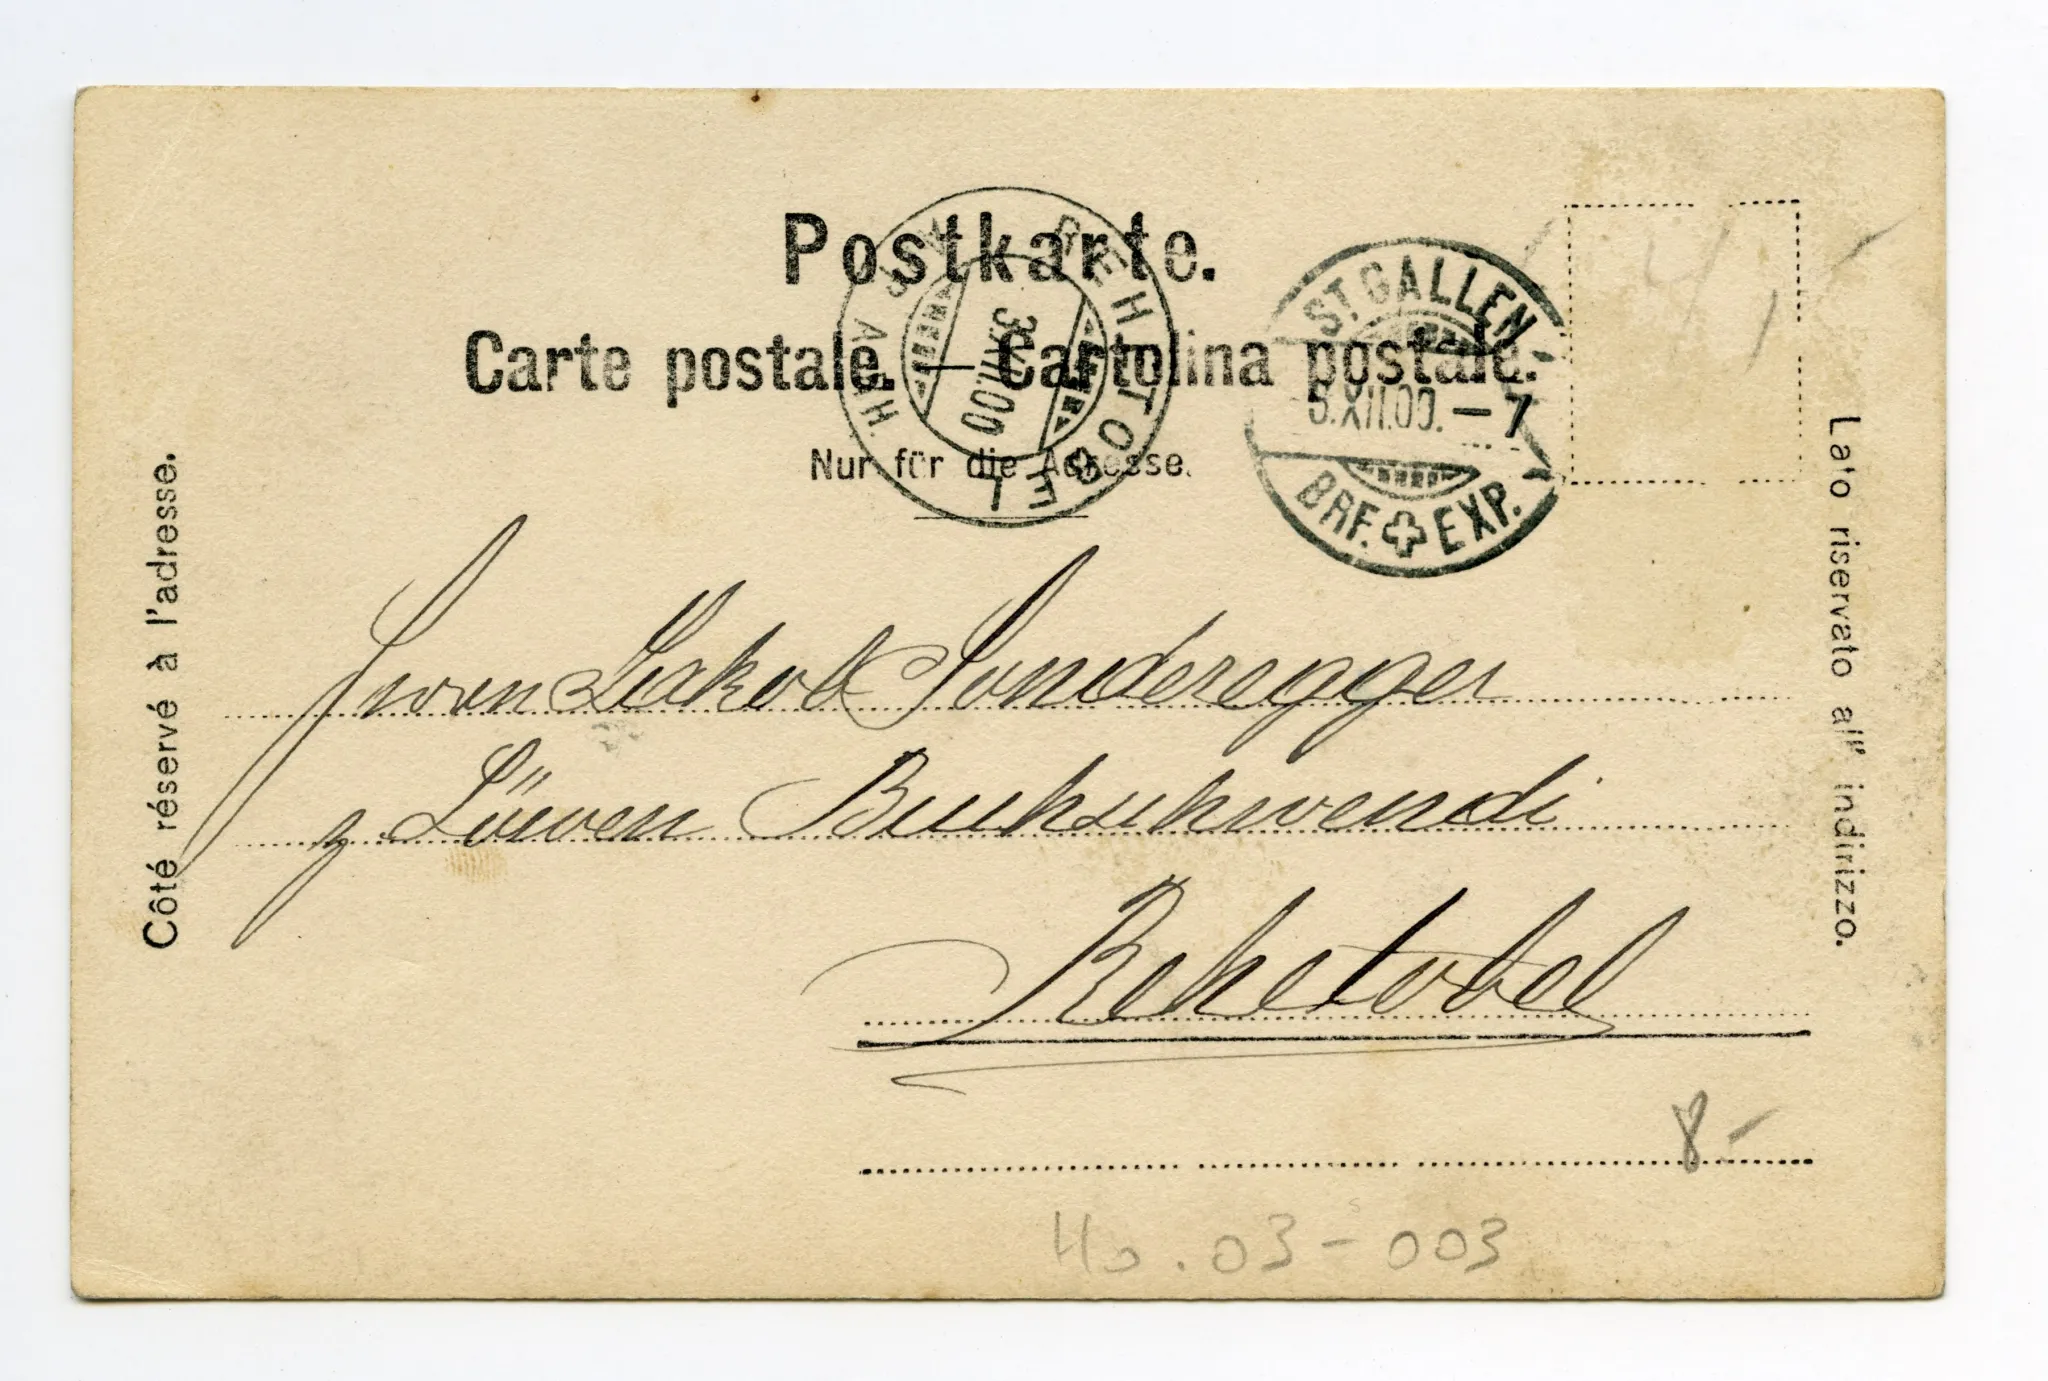 Postkarte.
Carte postale. — Cartolina postale.
Nur für die Adresse.
REHETOBEL
3.XII.00
ST. GALLEN
3.XII.00. – 7
BRF. EXP.
Côté réservé à l'adresse.
Lato riservato all' indirizzo.
Jakob Sonderegger
z. Löwen Buchschwendi
Rehetobel
8.–
Ho. 03-003